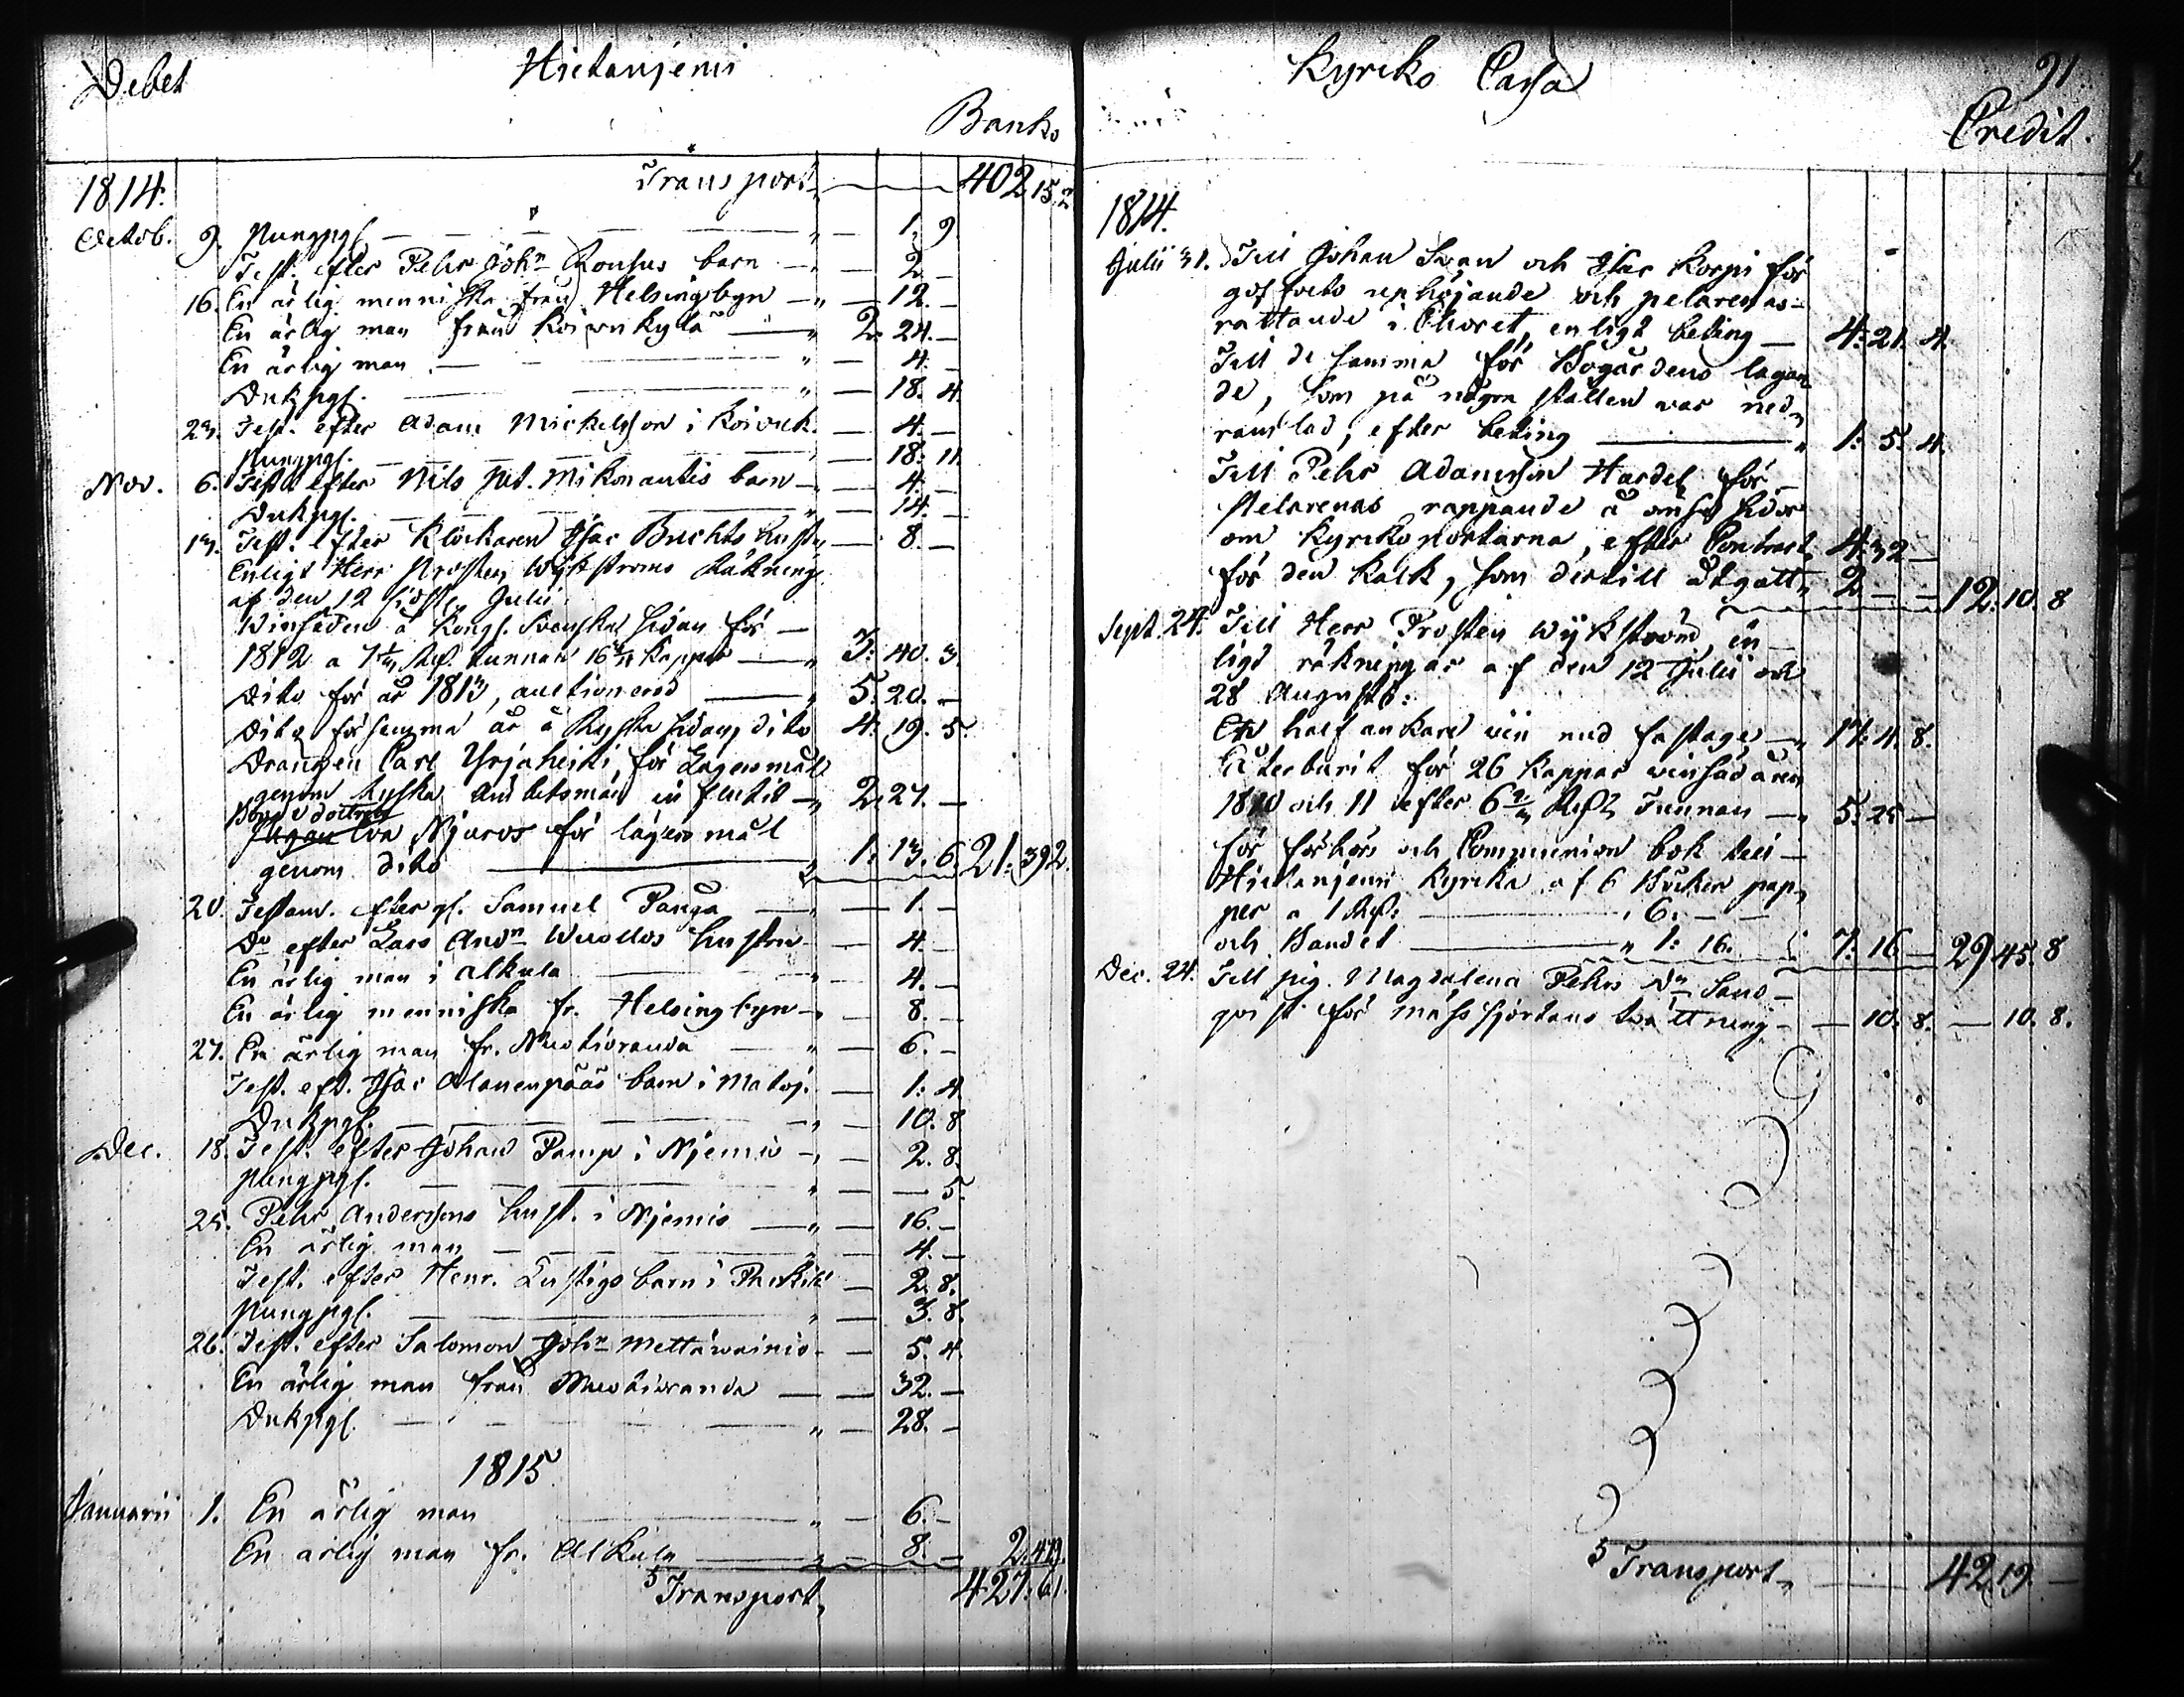 Debet Hietanjemi
Banko
Transport 402 15. 2
1814.
Octob. 9. Pungpgr 1. 9
Test. efter Pehr John Rousus barn 2. —
16. En ärlig menniska från Helsingbyn — 12. —
En ärlig man från Koivukylä 2. 24. —
En ärlig man 4. —
Dukpgr. 18. 4.
23. Test. efter Adam Mickelsson i Koivuk. — 4. —
Pungpgr. 18. 11.
Nov. 6. Test. efter Nils Pet. Mikonantis barn — 4. —
Dukpgr. 14. —
13. Test. efter Klockaren Isac Buchts hustru — 8. —
Enligt Herr Prosten Wykströms Räkning
af den 12 sidstl. Julii.
Winsäden å Kongl. Svenska sidan för —
1812 a 7 Rd. tunnan 16 Kappar 3. 40. 3.
Dito för år 1813, auctionerad 5. 20. —
Dito för samma år å Ryska sidan, dito 4. 19. 5
Drängen Carl Yrjäheiki, för Lägersmål
genom Ryska Ambetsman in flutit 2. 27. —
Eva Njaros för lägersmål
genom dito 1. 13. 6. 21. 39 2.
20. Testam. efter gl. Samuel Panga — 1. —
Do efter Lars Andn Wuollos hustru — 4. —
En ärlig man i Alkula 4. —
En ärlig menniska fr. Helsingbyn — 8. —
27. En ärlig man fr. Muotioranda — 6. —
Test. eft. Isac Alanenpääs barn i Matoj. — 1. 4
Dukpgr. 10. 8
Dec. 18. Test. efter Johan Pamp i Njemis — 2. 8.
Pungpgr. — 5.
25. Pehr Anderssons hust. i Njemis — 16. —
En ärlig man 4. —
Test. efter Henr. Lustigs barn i 2. 8.
Pungpgr. 3. 8.
26. Test. efter Salomon John Mettäwainio — 5. 4.
En ärlig man från Muotioranda — 32. —
Dukpgr. 28. —
1815
Januarii 1. En ärlig man 6. —
En ärlig man fr. Alkula 8. — 2. 47.
Transport 427. 6. 1.
Kyrko Cassa 91
Credit.
1814.
Julii 31. Till Johan Swan och Isac Korpi för
golfvets upphöjande och pelarenas
rättande i Choret, enligt beting — 4. 21. 4.
Till de samma för Bogårdens lagan-
de, som på några ställen war ned-
ramlad, efter beting 1. 5. 4.
Till Pehr Adamsson Hardel för
Pelarenas rappande å ömse sidor
om Kyrkoportarna, efter Contract 4. 32 —
för den kalk, som dertill åtgått, 2 — — 12. 10. 8
Sept. 24. Till Herr Prosten Wykström, en-
ligt räkningar af den 12 Julii och
28 Augusti:
Ett half ankare vin med fastage — 17. 4. 8.
Återburit för 26 Kappar winsäd åren
1810 och 11 efter 6 Rd. Tunnan — 5. 25 —
för förhörs och Communion bok till —
Hietanjemi Kyrka af 6 Böcker pap-
per a 1 Rd: 6. — —
och Bandet 1: 16. 7. 16 — 29 45. 8
Dec. 24. Till pig. Magdalena Pehrs Dr Sand-
qvist för mässkjortans twättning — — 10. 8. — 10. 8.
Transport 42. 19. —